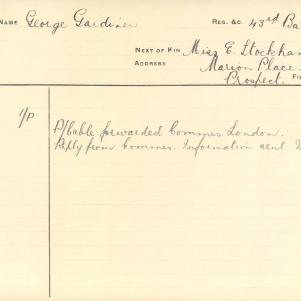 NAME George Gardiner REG. &C. 43rd Ba
NEXT OF KIN Miss E. Stockham
ADDRESS Marion Place
Prospect.
I/P
P/Cable forwarded Commrs. London.
Reply from Commrs. Information sent